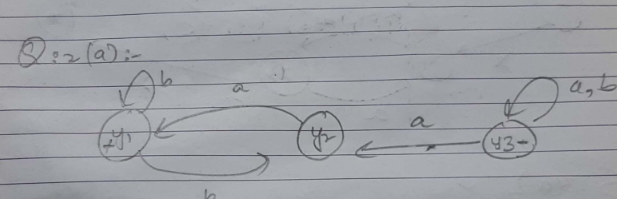 Q:2(a):-
b
a
a, b
+y1
y2
a
y3-
b